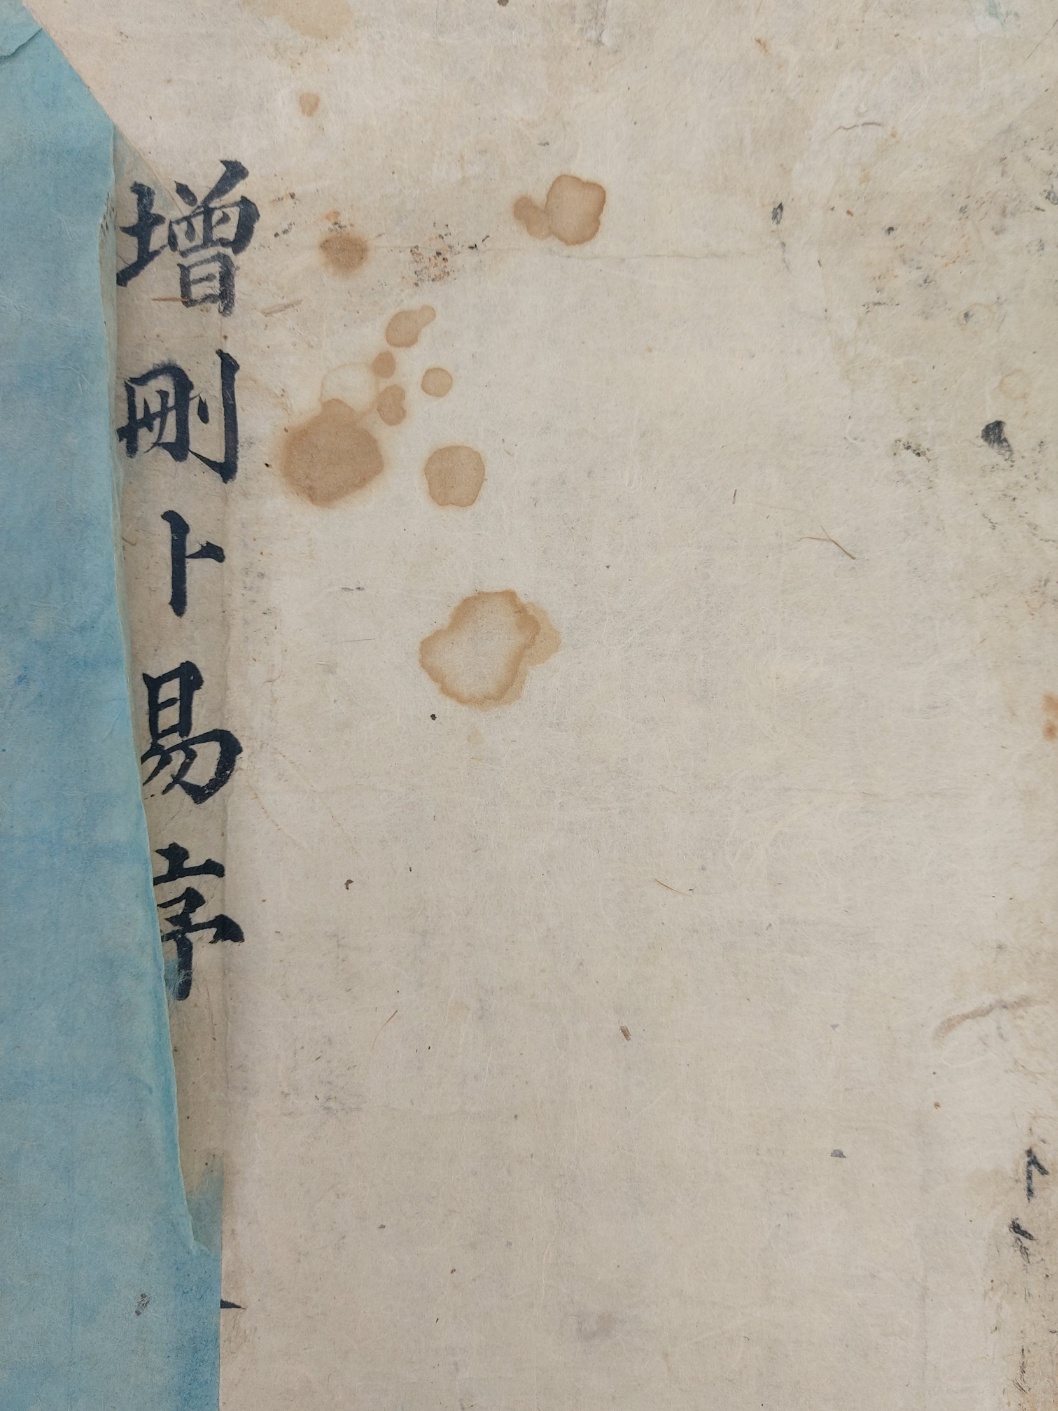 增刪卜易序